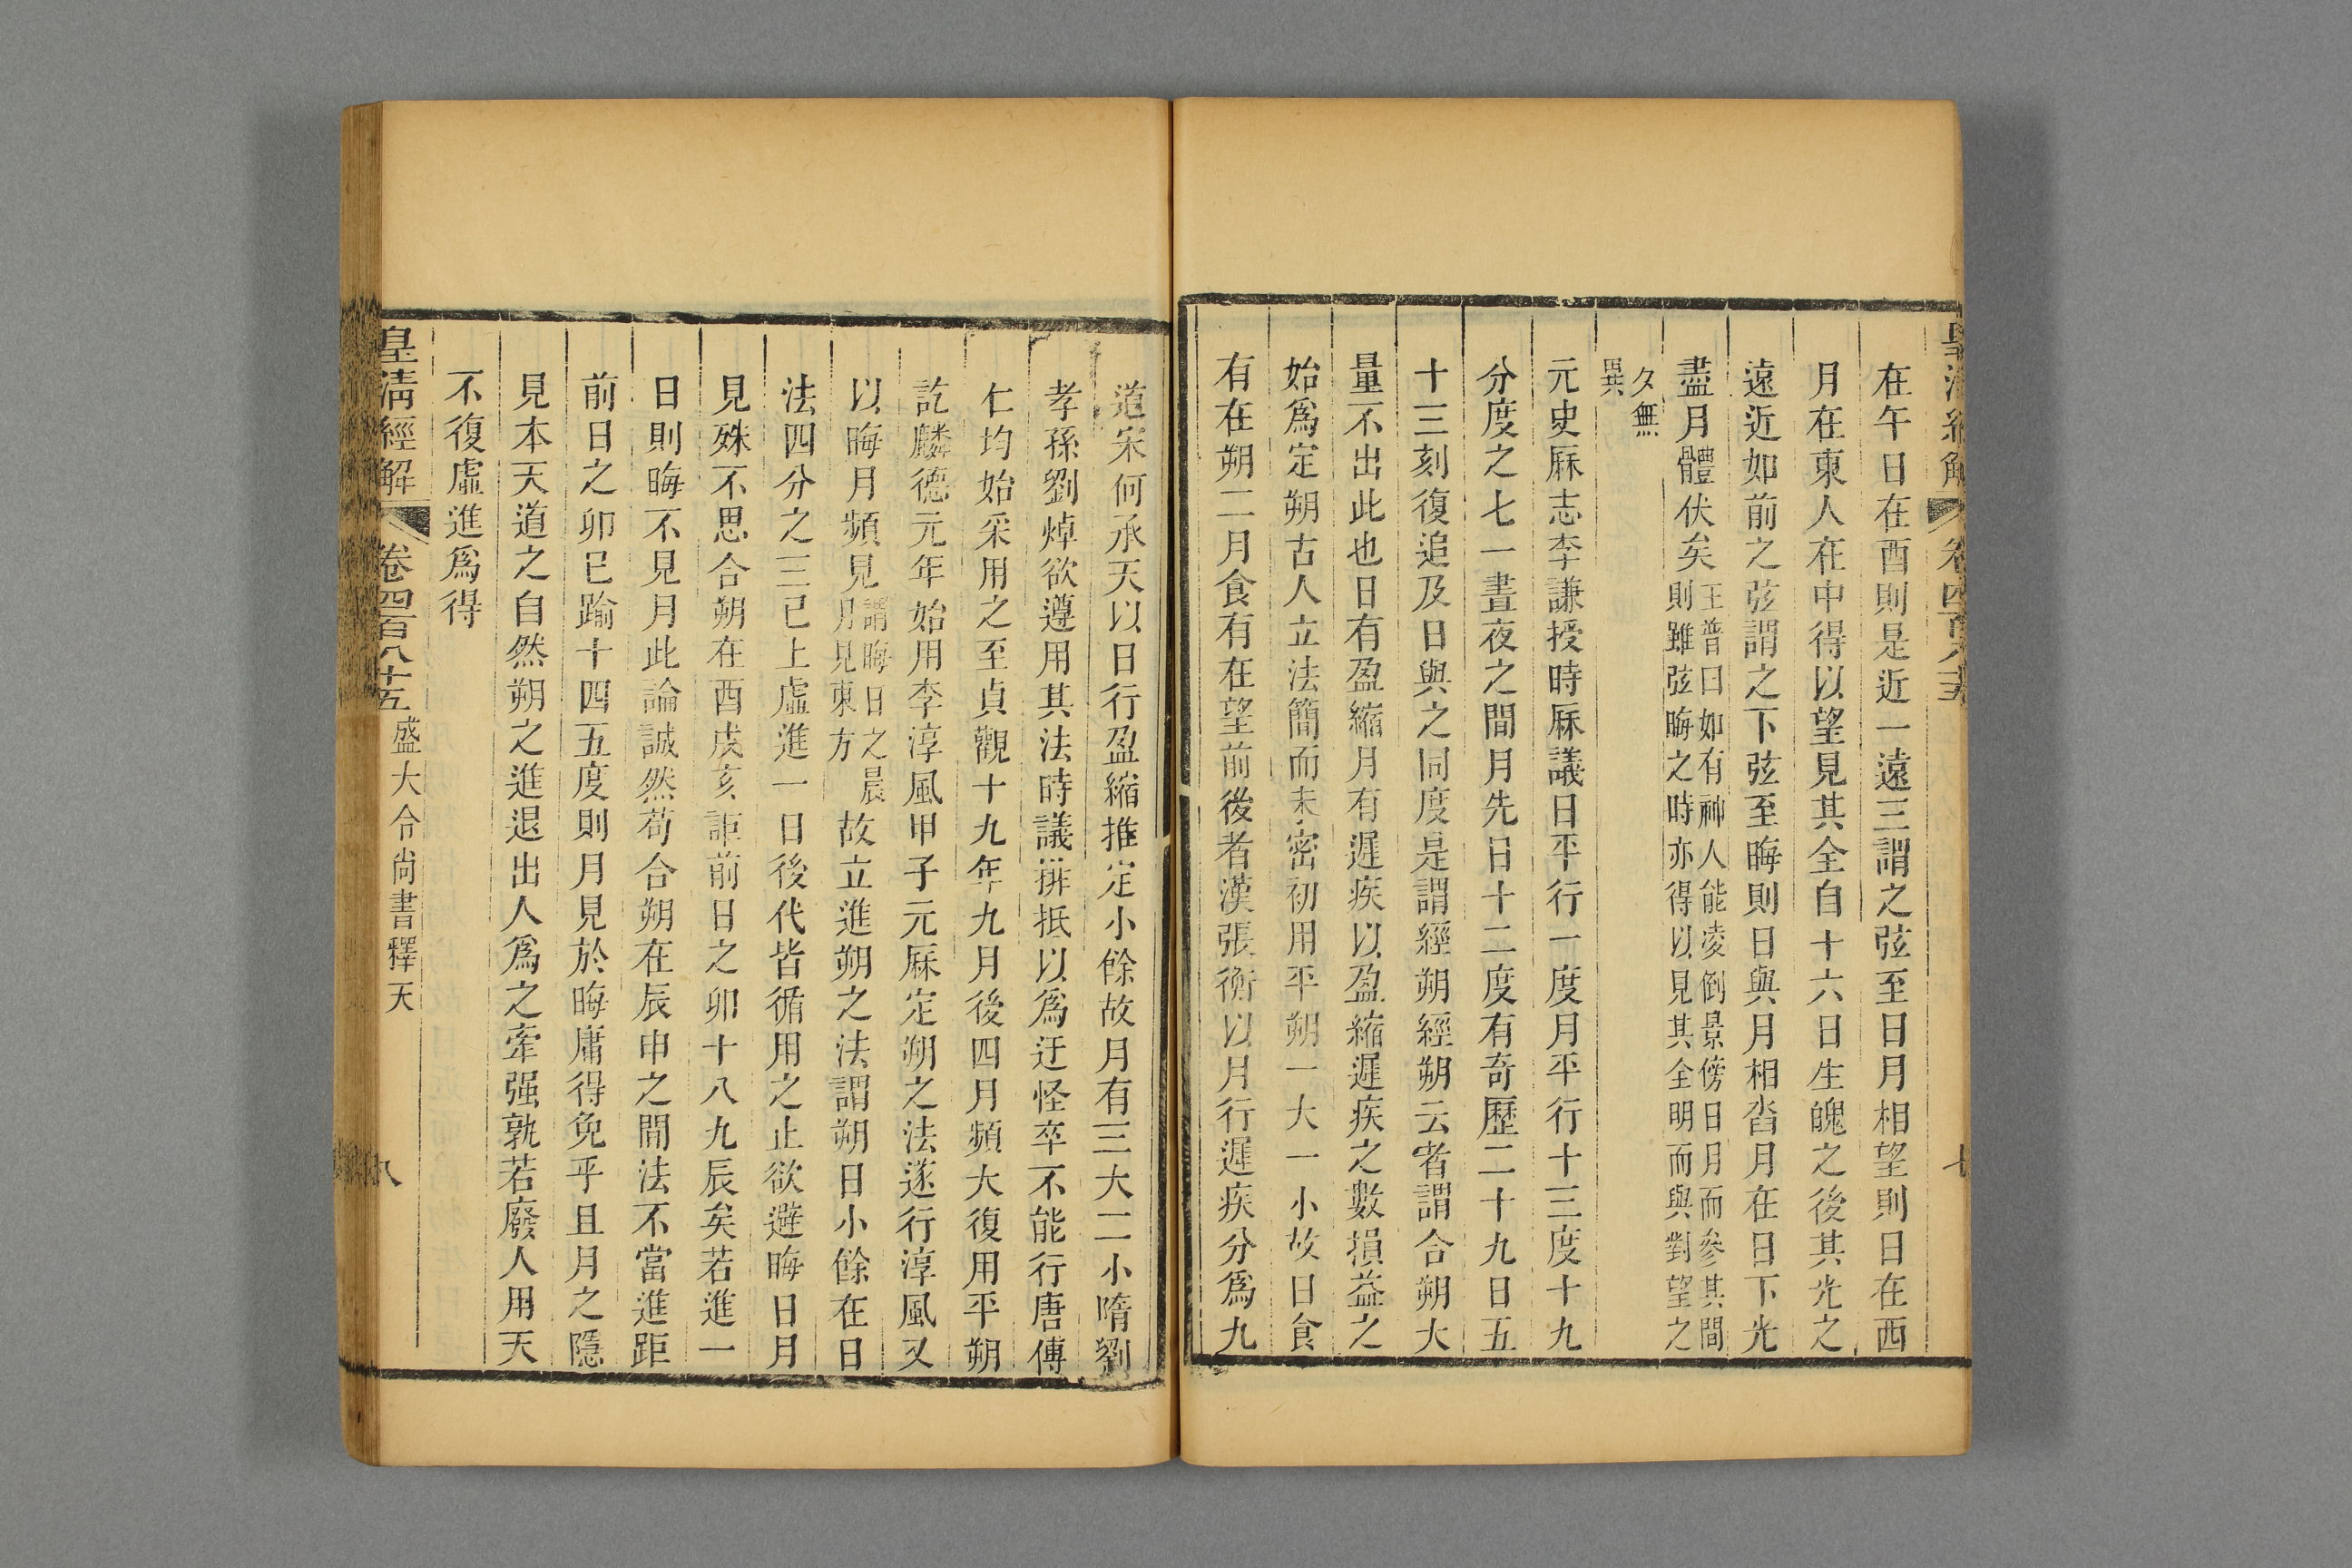 在午日在酉則是近一遠三謂之弦至日月相望則日在西
月在東人在中得以望見其全自十六日生魄之後其光之
遠近如前之弦謂之下弦至晦則日與月相沓月在日下光
盡月體伏矣王普曰如有神人能凌倒景傍日月而參其間
則雖弦晦之時亦得以見其全明而與對望之
夕無
異
元史厤志李謙授時厤議日平行一度月平行十三度十九
分度之七一晝夜之間月先日十二度有奇歷二十九日五
十三刻復追及日與之同度是謂經朔經朔云者謂合朔大
量不出此也日有盈縮月有遲疾以盈縮遲疾之數損益之
始爲定朔古人立法簡而未密初用平朔一大一小故日食
有在朔二月食有在望前後者漢張衡以月行遲疾分爲九
道宋何承天以日行盈縮推定小餘故月有三大二小隋劉
孝孫劉焯欲遵用其法時議排抵以爲迂怪卒不能行唐傅
仁均始采用之至貞觀十九年九月後四月頻大復用平朔
訖麟德元年始用李淳風甲子元厤定朔之法遂行淳風又
以晦月頻見謂晦日之晨
月見東方故立進朔之法謂朔日小餘在日
法四分之三已上虛進一日後代皆循用之止欲避晦日月
見殊不思合朔在酉戌亥詎前日之卯十八九辰矣若進一
日則晦不見月此論誠然苟合朔在辰申之間法不當進距
前日之卯已踰十四五度則月見於晦庸得免乎且月之隱
見本天道之自然朔之進退出人爲之牽强孰若廢人用天
不復虛進爲得
皇清經解 卷四百八十五 盛大令尚書釋天 八